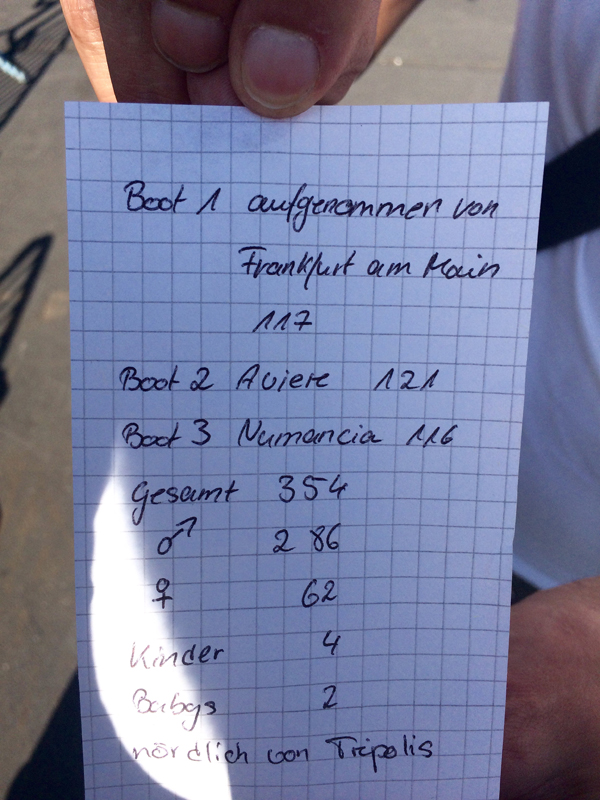 Boot 1 aufgenommen von
Frankfurt am Main
117
Boot 2 Aviere 121
Boot 3 Numancia 116
Gesamt 354
♂ 286
♀ 62
Kinder 4
Babys 2
nördlich von Tripolis